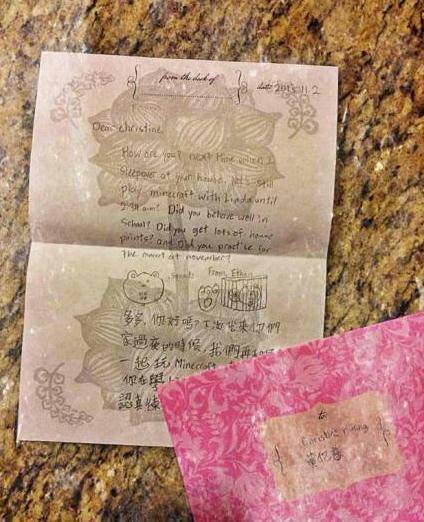 from the desk of
date 2013.11.2
Dear christine,
How are you? next time when I
sleepover at your house, let's still
play minecraft with Linda until
2:30 am? Did you behave well in
School? Did you get lots of house
points? and did you practise for
the in november?
From Ethan
你好嗎?下次
家過夜的時候,我們再
一起玩 Minecraft
你在學
認真練
to